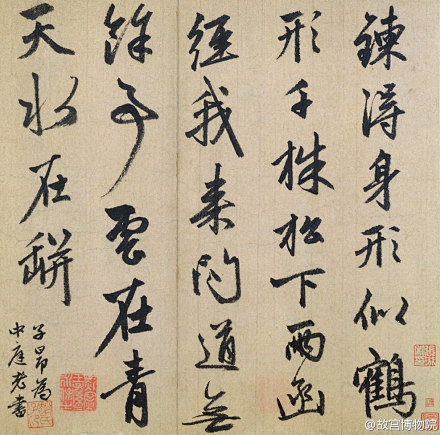 鍊得身形似鶴
形千株松下兩函
經我来問道無
餘事雲在青
天水在缾
子昂為
中庭老書
@故宫博物院